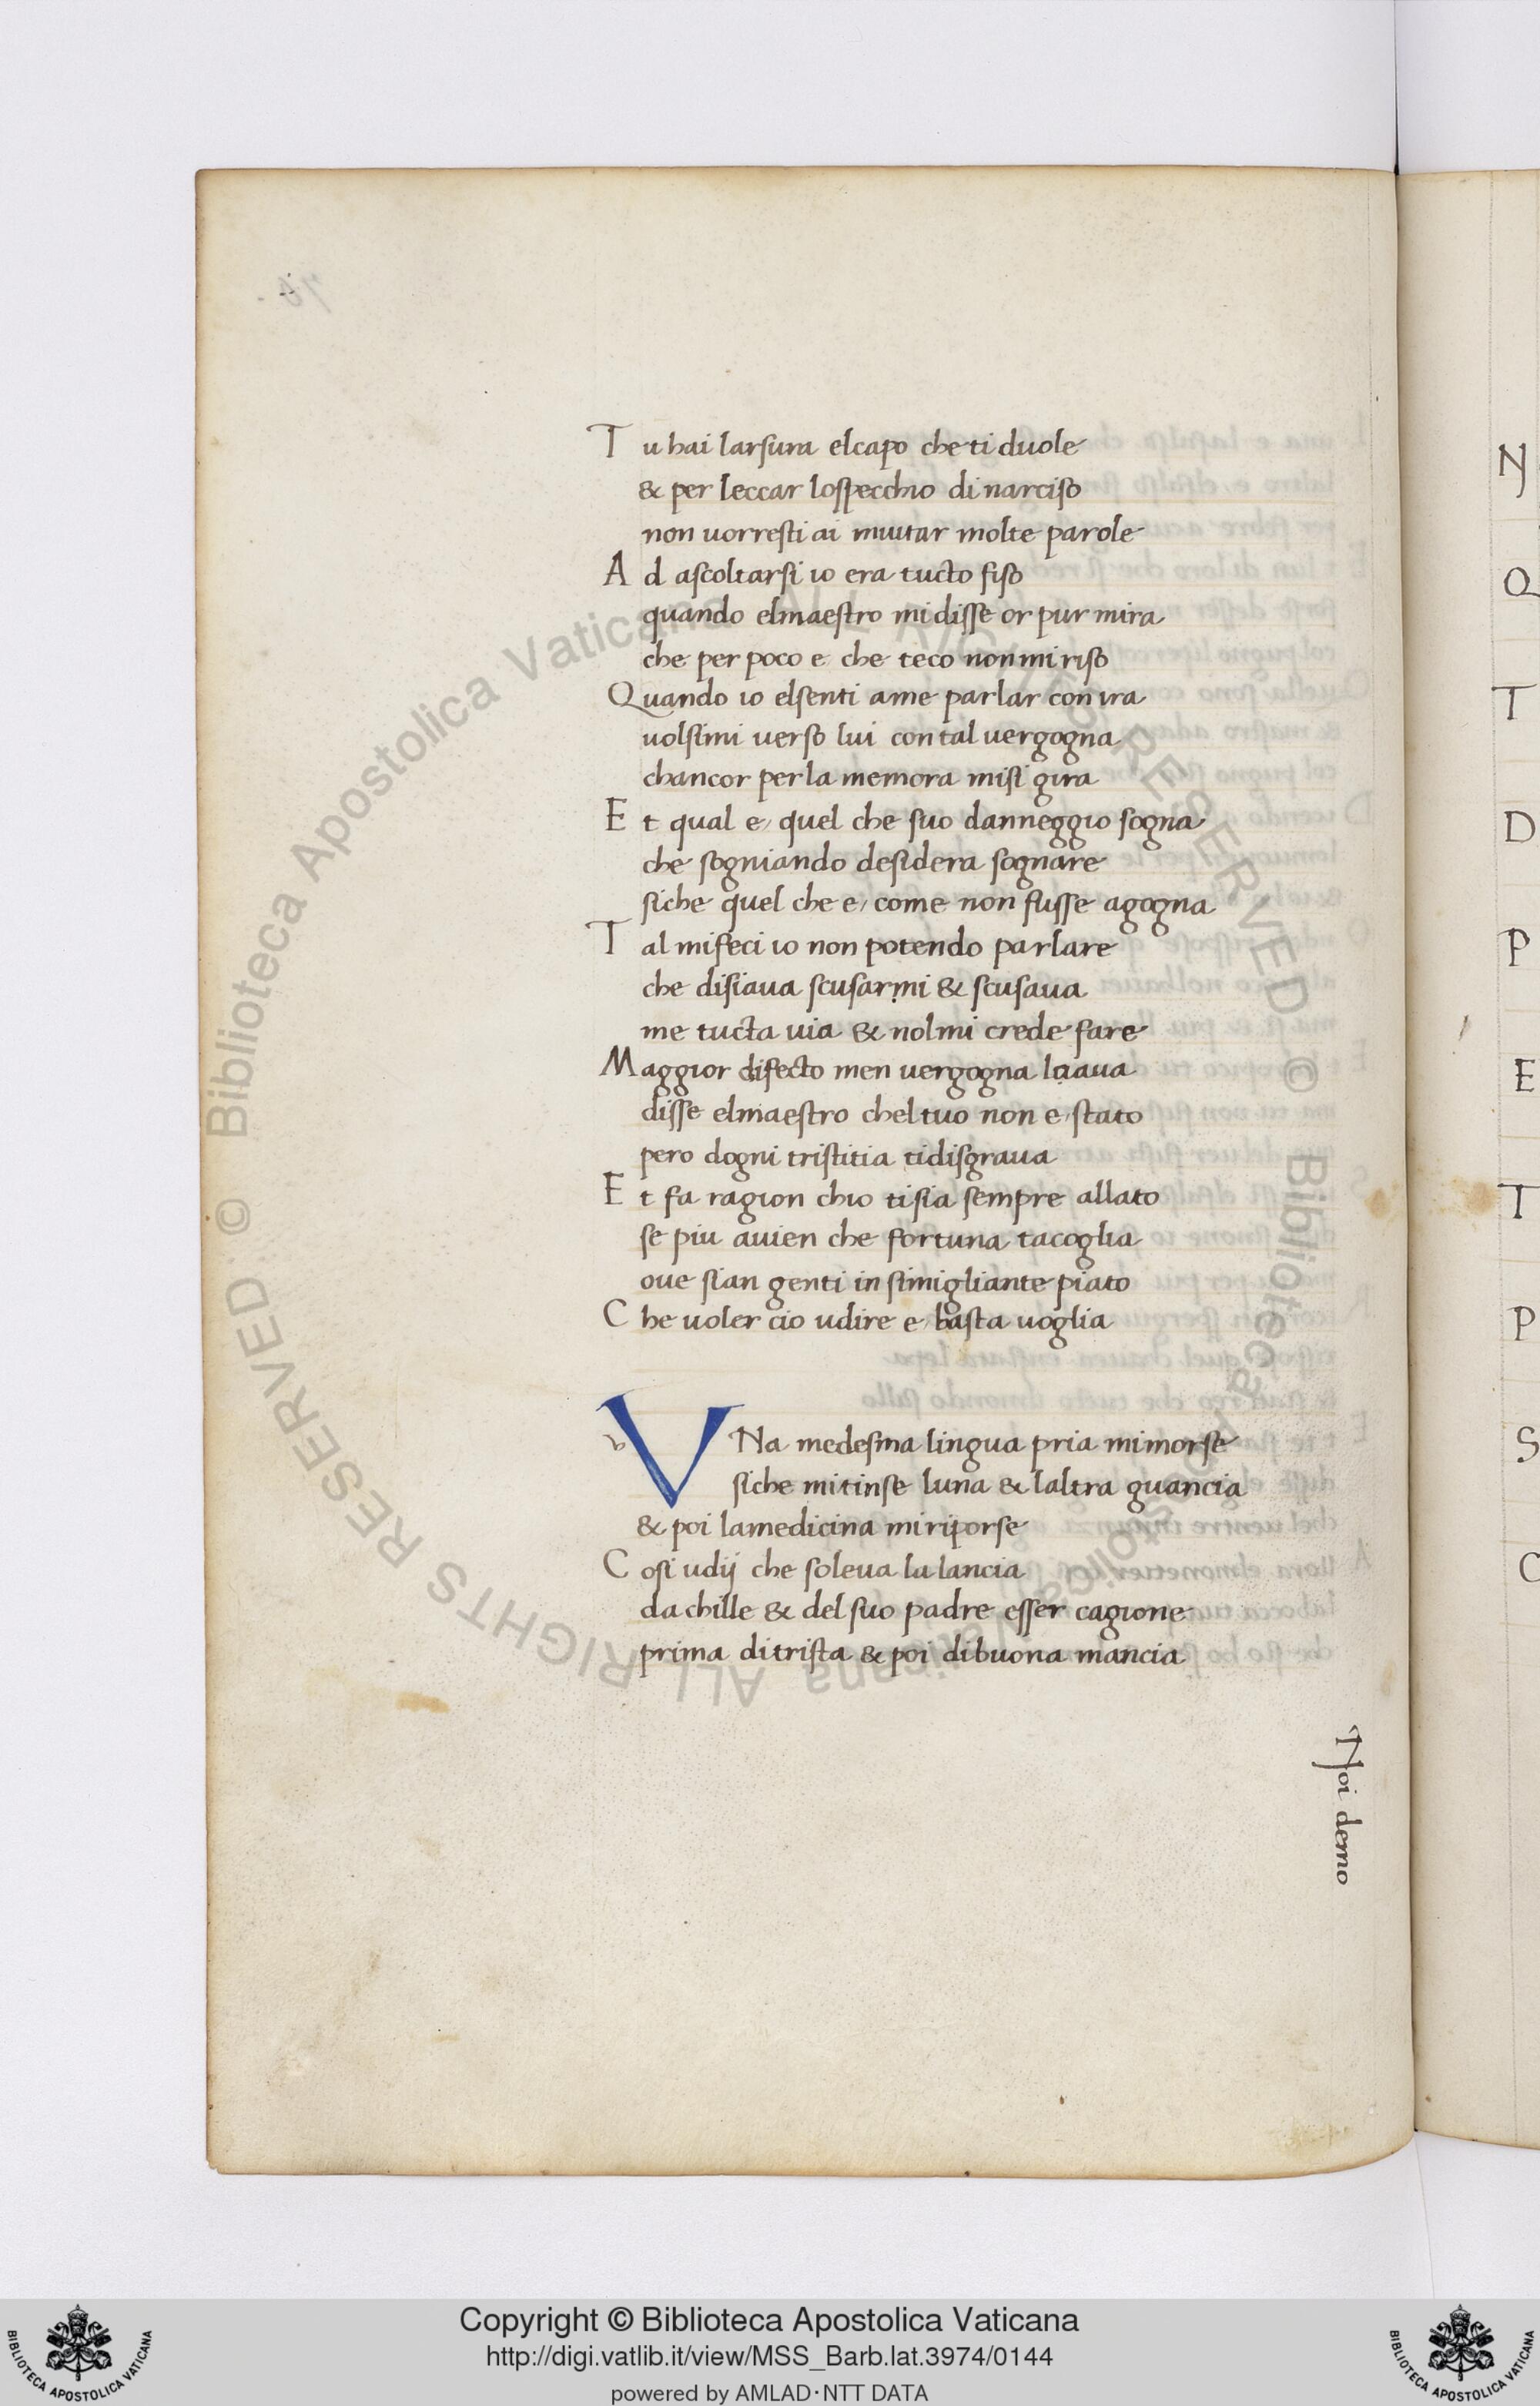 Tu hai larsura elcapo che ti duole
& per leccar lospecchio di narciso
non uorresti ai muitar molte parole
Ad ascoltarsi io era tucto fiso
quando elmaestro mi disse or pur mira
che per poco e che teco non mi riso
Quando io elsenti ame parlar con ira
uolsimi uerso lui con tal uergogna
chancor perla memora misi gira
Et qual e quel che suo danneggio sogna
che sogniando desidera sognare
siche quel che e come non fusse agogna
Tal mifeci io non potendo parlare
che disiaua scusarmi & scusaua
me tucta uia & nolmi crede fare
Maggior difecto men uergogna laaua
disse elmaestro cheltuo non e stato
pero dogni tristitia tidisgraua
Et fa ragion chio tisia sempre allato
se piu auien che fortuna tacoglia
oue sian genti in simigliante piato
Che uoler cio udire e basta uoglia
v
VNa medesma lingua pria mimorse
siche mitinse luna & laltra guancia
& poi lamedicina miriporse
Cosi udij che soleua la lancia
dachille & del suo padre esser cagione
prima ditrista & poi dibuona mancia
Noi demo
N
Q
T
D
P
E
T
P
S
C
© Biblioteca Apostolica Vaticana ALL RIGHTS RESERVED © Biblioteca Apostolica Vaticana ALL RIGHTS RESERVED
Copyright © Biblioteca Apostolica Vaticana
http://digi.vatlib.it/view/MSS_Barb.lat.3974/0144
powered by AMLAD·NTT DATA
BIBLIOTECA APOSTOLICA VATICANA
BIBLIOTECA APOSTOLICA VATICANA